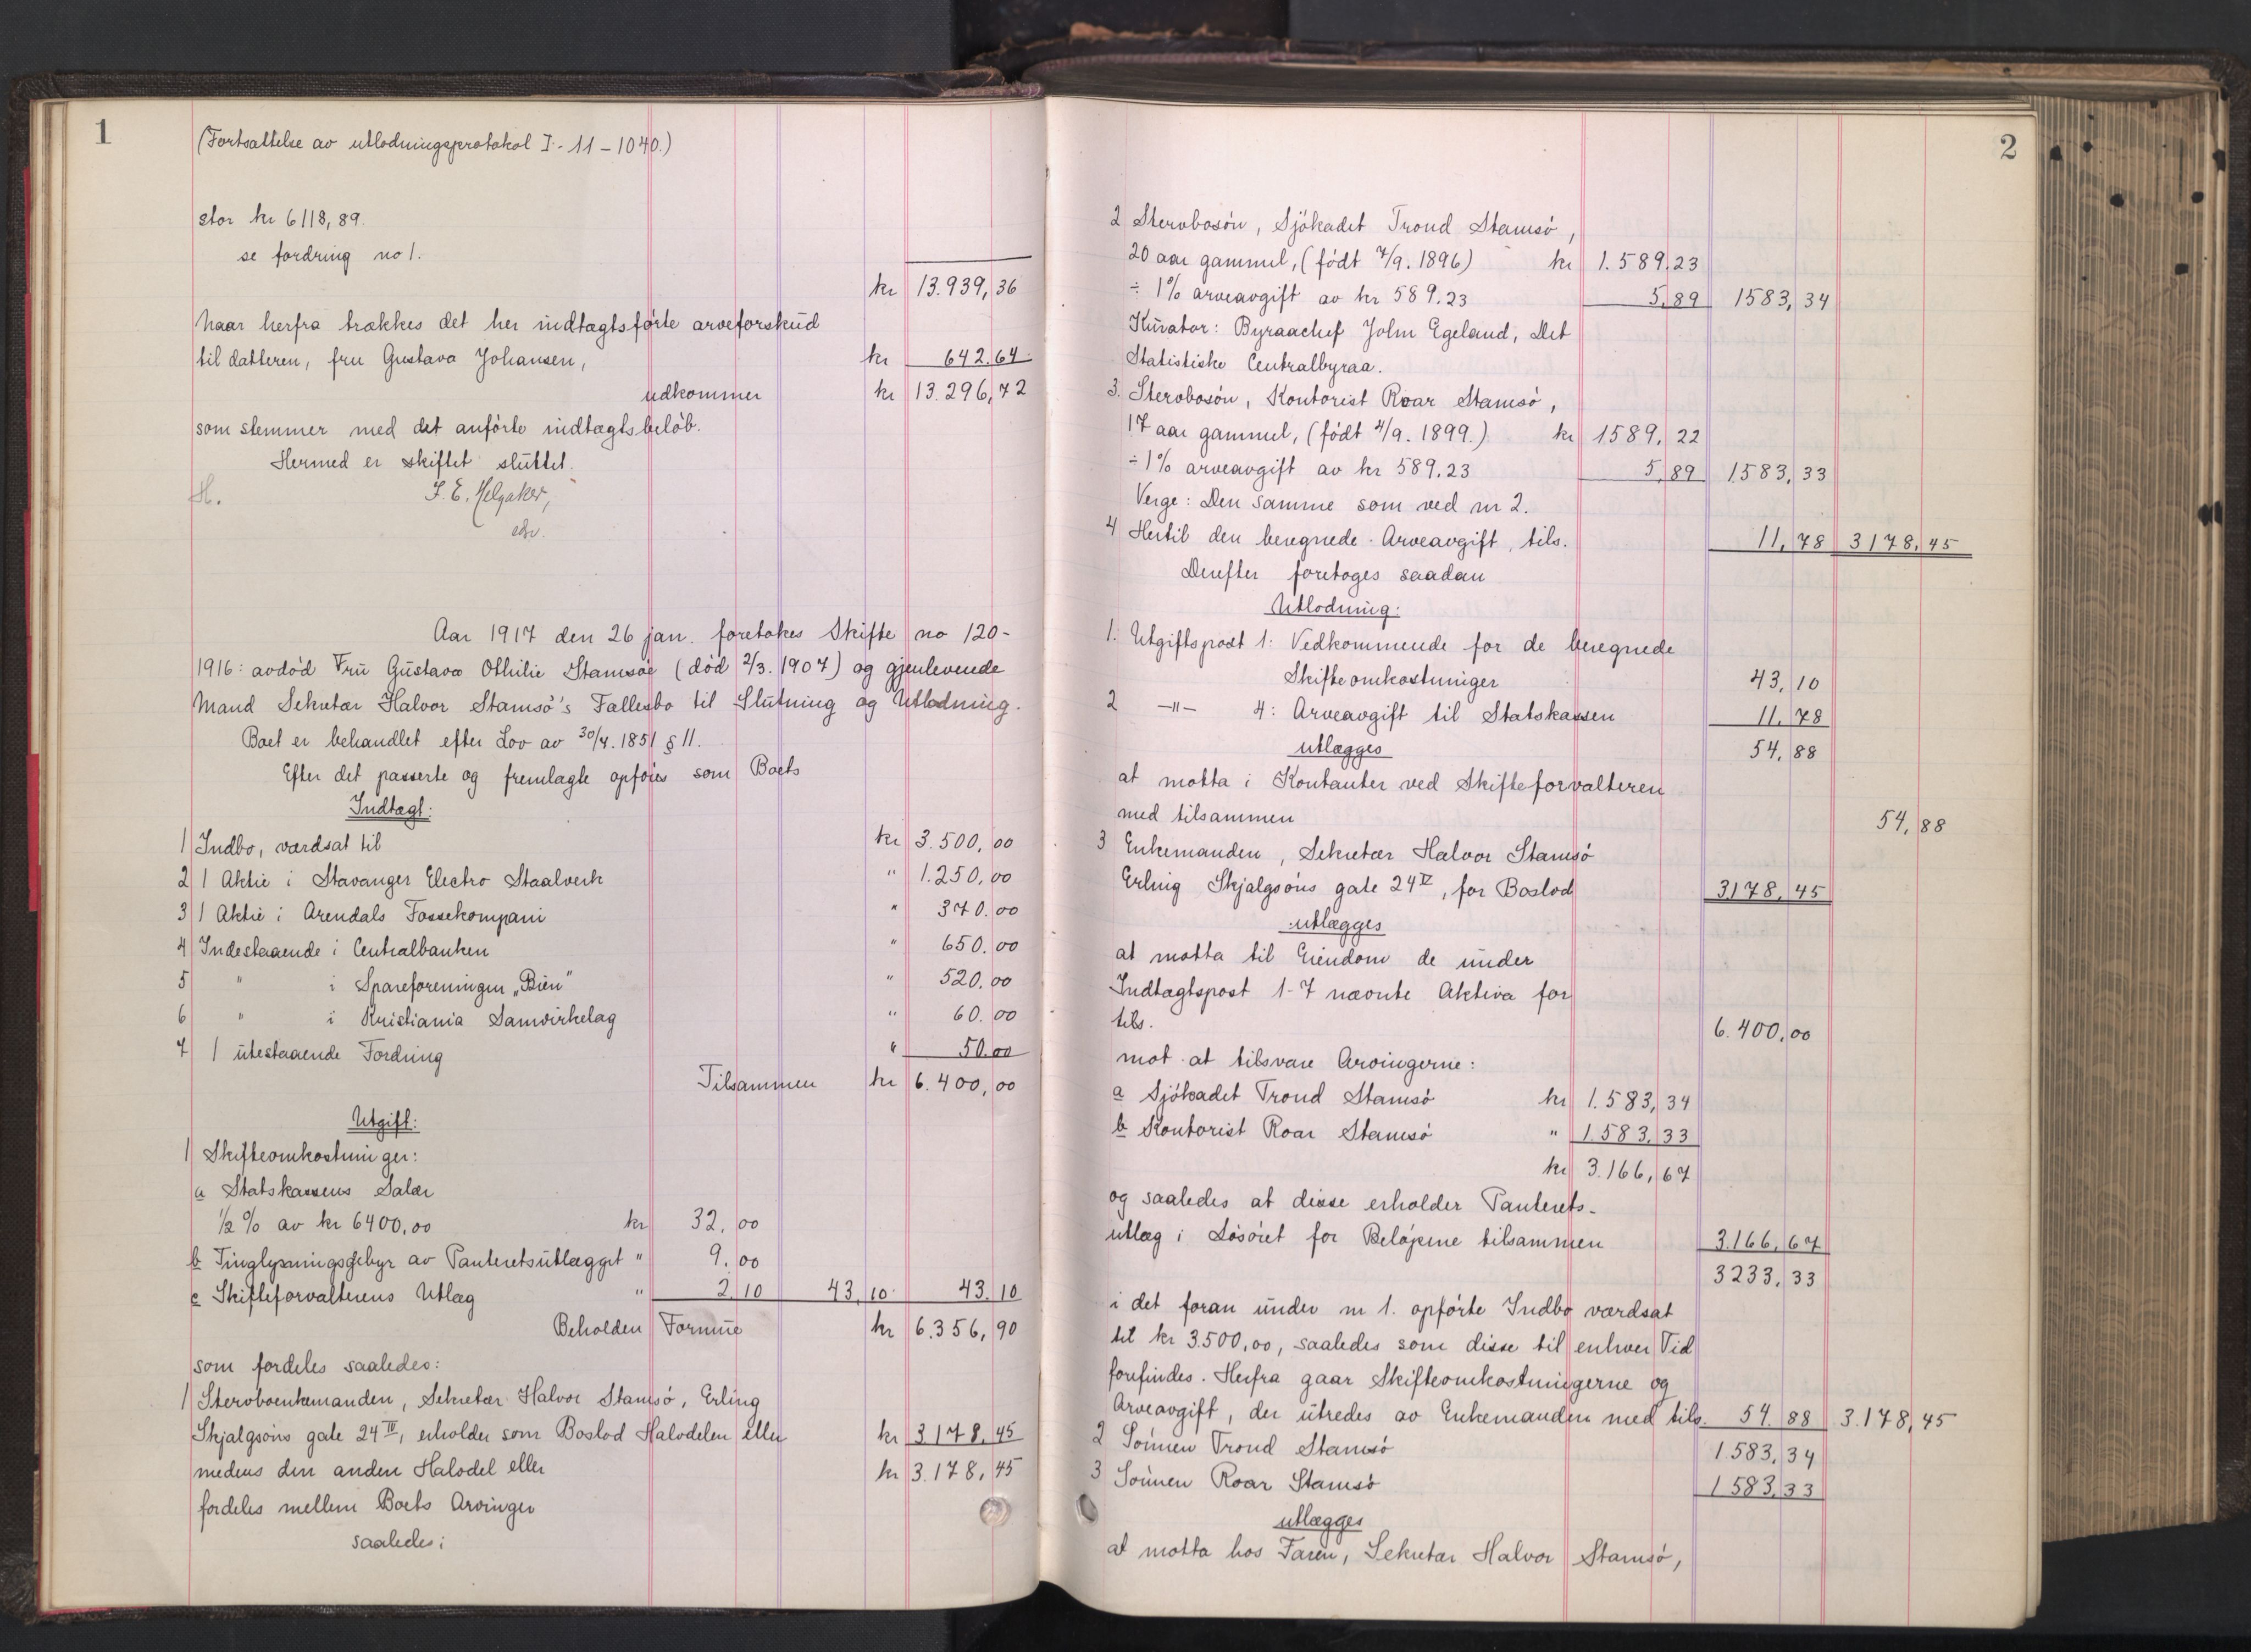 1
(Fortsattelse av utlodningsprotokol I - 11 - 1040.)
stor kr 6118,89.
se fordring no 1.
kr 13.939,36
Naar herfra trækkes det her indtægtsførte arveforskud
til datteren, fru Gustava Johansen, kr 642.64
udkommer kr 13.296,72
som stemmer med det anførte indtægtsbeløb.
Hermed er skiftet sluttet.
H. J. E. Helgaker,
edv.
Aar 1917 den 26 jan. foretokes Skifte no 120-
1916: avdød Fru Gustava Othilie Stamsøe (død 2/3. 1907) og gjenlevende
Mand Sekretær Halvor Stamsø's Fællesbo til Slutning og Utlodning.
Boet er behandlet efter Lov av 30/4. 1851 § 11.
Efter det passerte og fremlagte opføies som Boets
Indtægt:
1 Indbo, værdsat til kr 3.500,00
2 1 Aktie i Stavanger Electro Staalverk " 1.250,00
3 1 Aktie i Arendals Fossekompani " 370.00
4 Indestaaende i Centralbanken " 650.00
5 " i Spareforeningen „Bien" " 520.00
6 " i Kristiania Samvirkelag " 60.00
7 1 utestaaende Fordring " 50.00
Tilsammen kr 6.400,00
Utgift:
1 Skifteomkostninger:
a Statskassens Salær
1/2 % av kr 6400,00 kr 32,00
b Tinglysningsgebyr av Panteretsutlægget " 9.00
c Skifteforvalterens Utlæg " 2.10 43,10 43.10
Beholden Formue kr 6.356,90
som fordeles saaledes:
1 Stervboenkemanden, Sekretær Halvor Stamsø, Erling
Skjalgsøns gate 24 III, erholder som Boslod Halvdelen eller kr 3178.45
medens den anden Halvdel eller kr 3.178,45
fordeles mellem Boets Arvinger
saaledes:
2
2 Stervbosøn, Sjøkadet Trond Stamsø,
20 aar gammel, (født 7/9. 1896) kr 1.589.23
÷ 1% arveavgift av kr 589.23 5,89 1583,34
Kurator: Byraachef John Egeland, Det
Statistiske Centralbyraa.
3. Stervbosøn, Kontorist Roar Stamsø,
17 aar gammel, (født 4/9. 1899.) kr 1589,22
÷ 1% arveavgift av kr 589.23 5,89 1583,33
Verge: Den samme som ved nr 2.
4 Hertil den beregnede Arveavgift, tils. 11,78 3178,45
Derefter foretoges saadan
Utlodning:
1. Utgiftspost 1: Vedkommende for de beregnede
Skifteomkostninger 43,10
2 -"- 4: Arveavgift til Statskassen 11.78
utlægges 54,88
at motta i Kontanter ved Skifteforvalteren
med tilsammen 54,88
3 Enkemanden, Sekretær Halvor Stamsø
Erling Skjalgsøns gate 24 IV, for Boslod 3178,45
utlægges
at motta til Eiendom de under
Indtægtspost 1-7 nævnte Aktiva for
tils. 6.400,00
mot at tilsvare Arvingerne:
a Sjøkadet Trond Stamsø kr 1.583,34
b Kontorist Roar Stamsø " 1.583.33
kr 3.166,67
og saaledes at disse erholder Panterets-
utlæg i Løsøret for Beløpene tilsammen 3.166,67
3233,33
i det foran under nr 1. opførte Indbo værdsat
til kr 3.500,00, saaledes som disse til enhver Tid
forefindes. Herfra gaar Skifteomkostningerne og
Arveavgift, der utredes av Enkemanden med tils. 54.88 3.178,45
2 Sønnen Trond Stamsø 1.583,34
3 Sønnen Roar Stamsø 1583,33
utlægges
at motta hos Faren, Sekretær Halvor Stamsø,